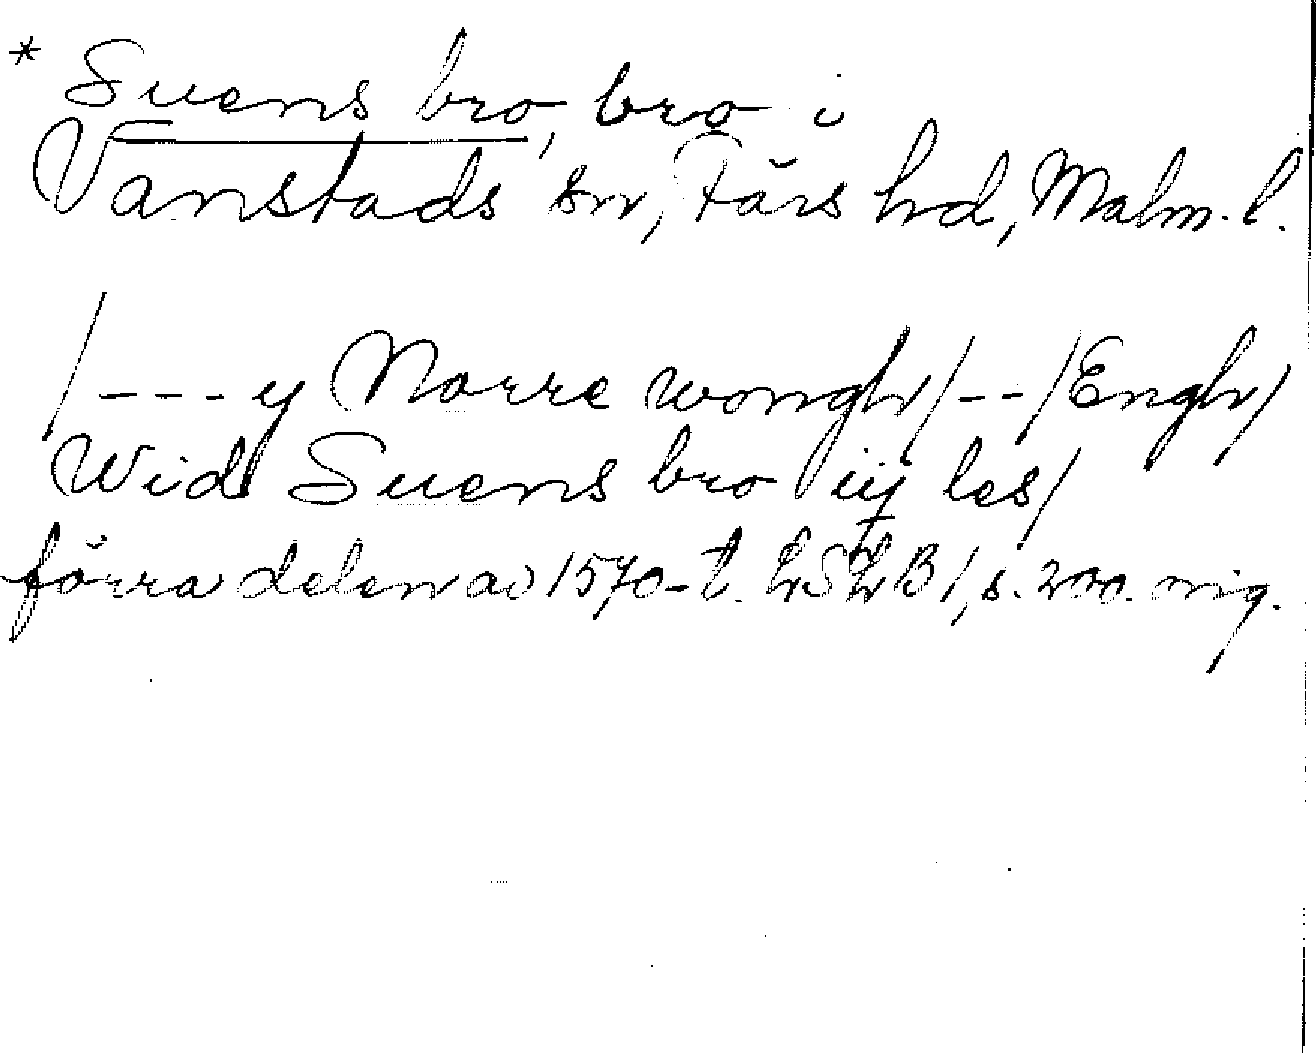 * Suens bro, bro i
Vanstads sn, Färs hd, Malm. l.
/---y Norre wongh/--/Engh/
Wid Suens bro iij les/
förra delen av 1570-t. LSLB 1, s. 200. orig.